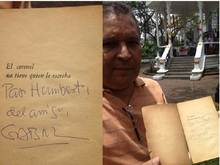 El coronel
no tiene quien le escriba
Para Humberto,
del amigo,
GABRIEL